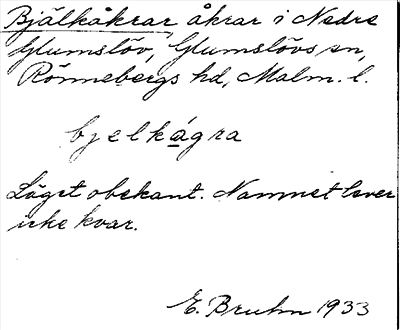 Bjälkåkrar, åkrar i Nedre
Glumslöv, Glumslövs sn,
Rönnebergs hd, Malm. l.
bjelkågra
Läget obekant. Namnet lever
icke kvar.
E. Bruhn 1933